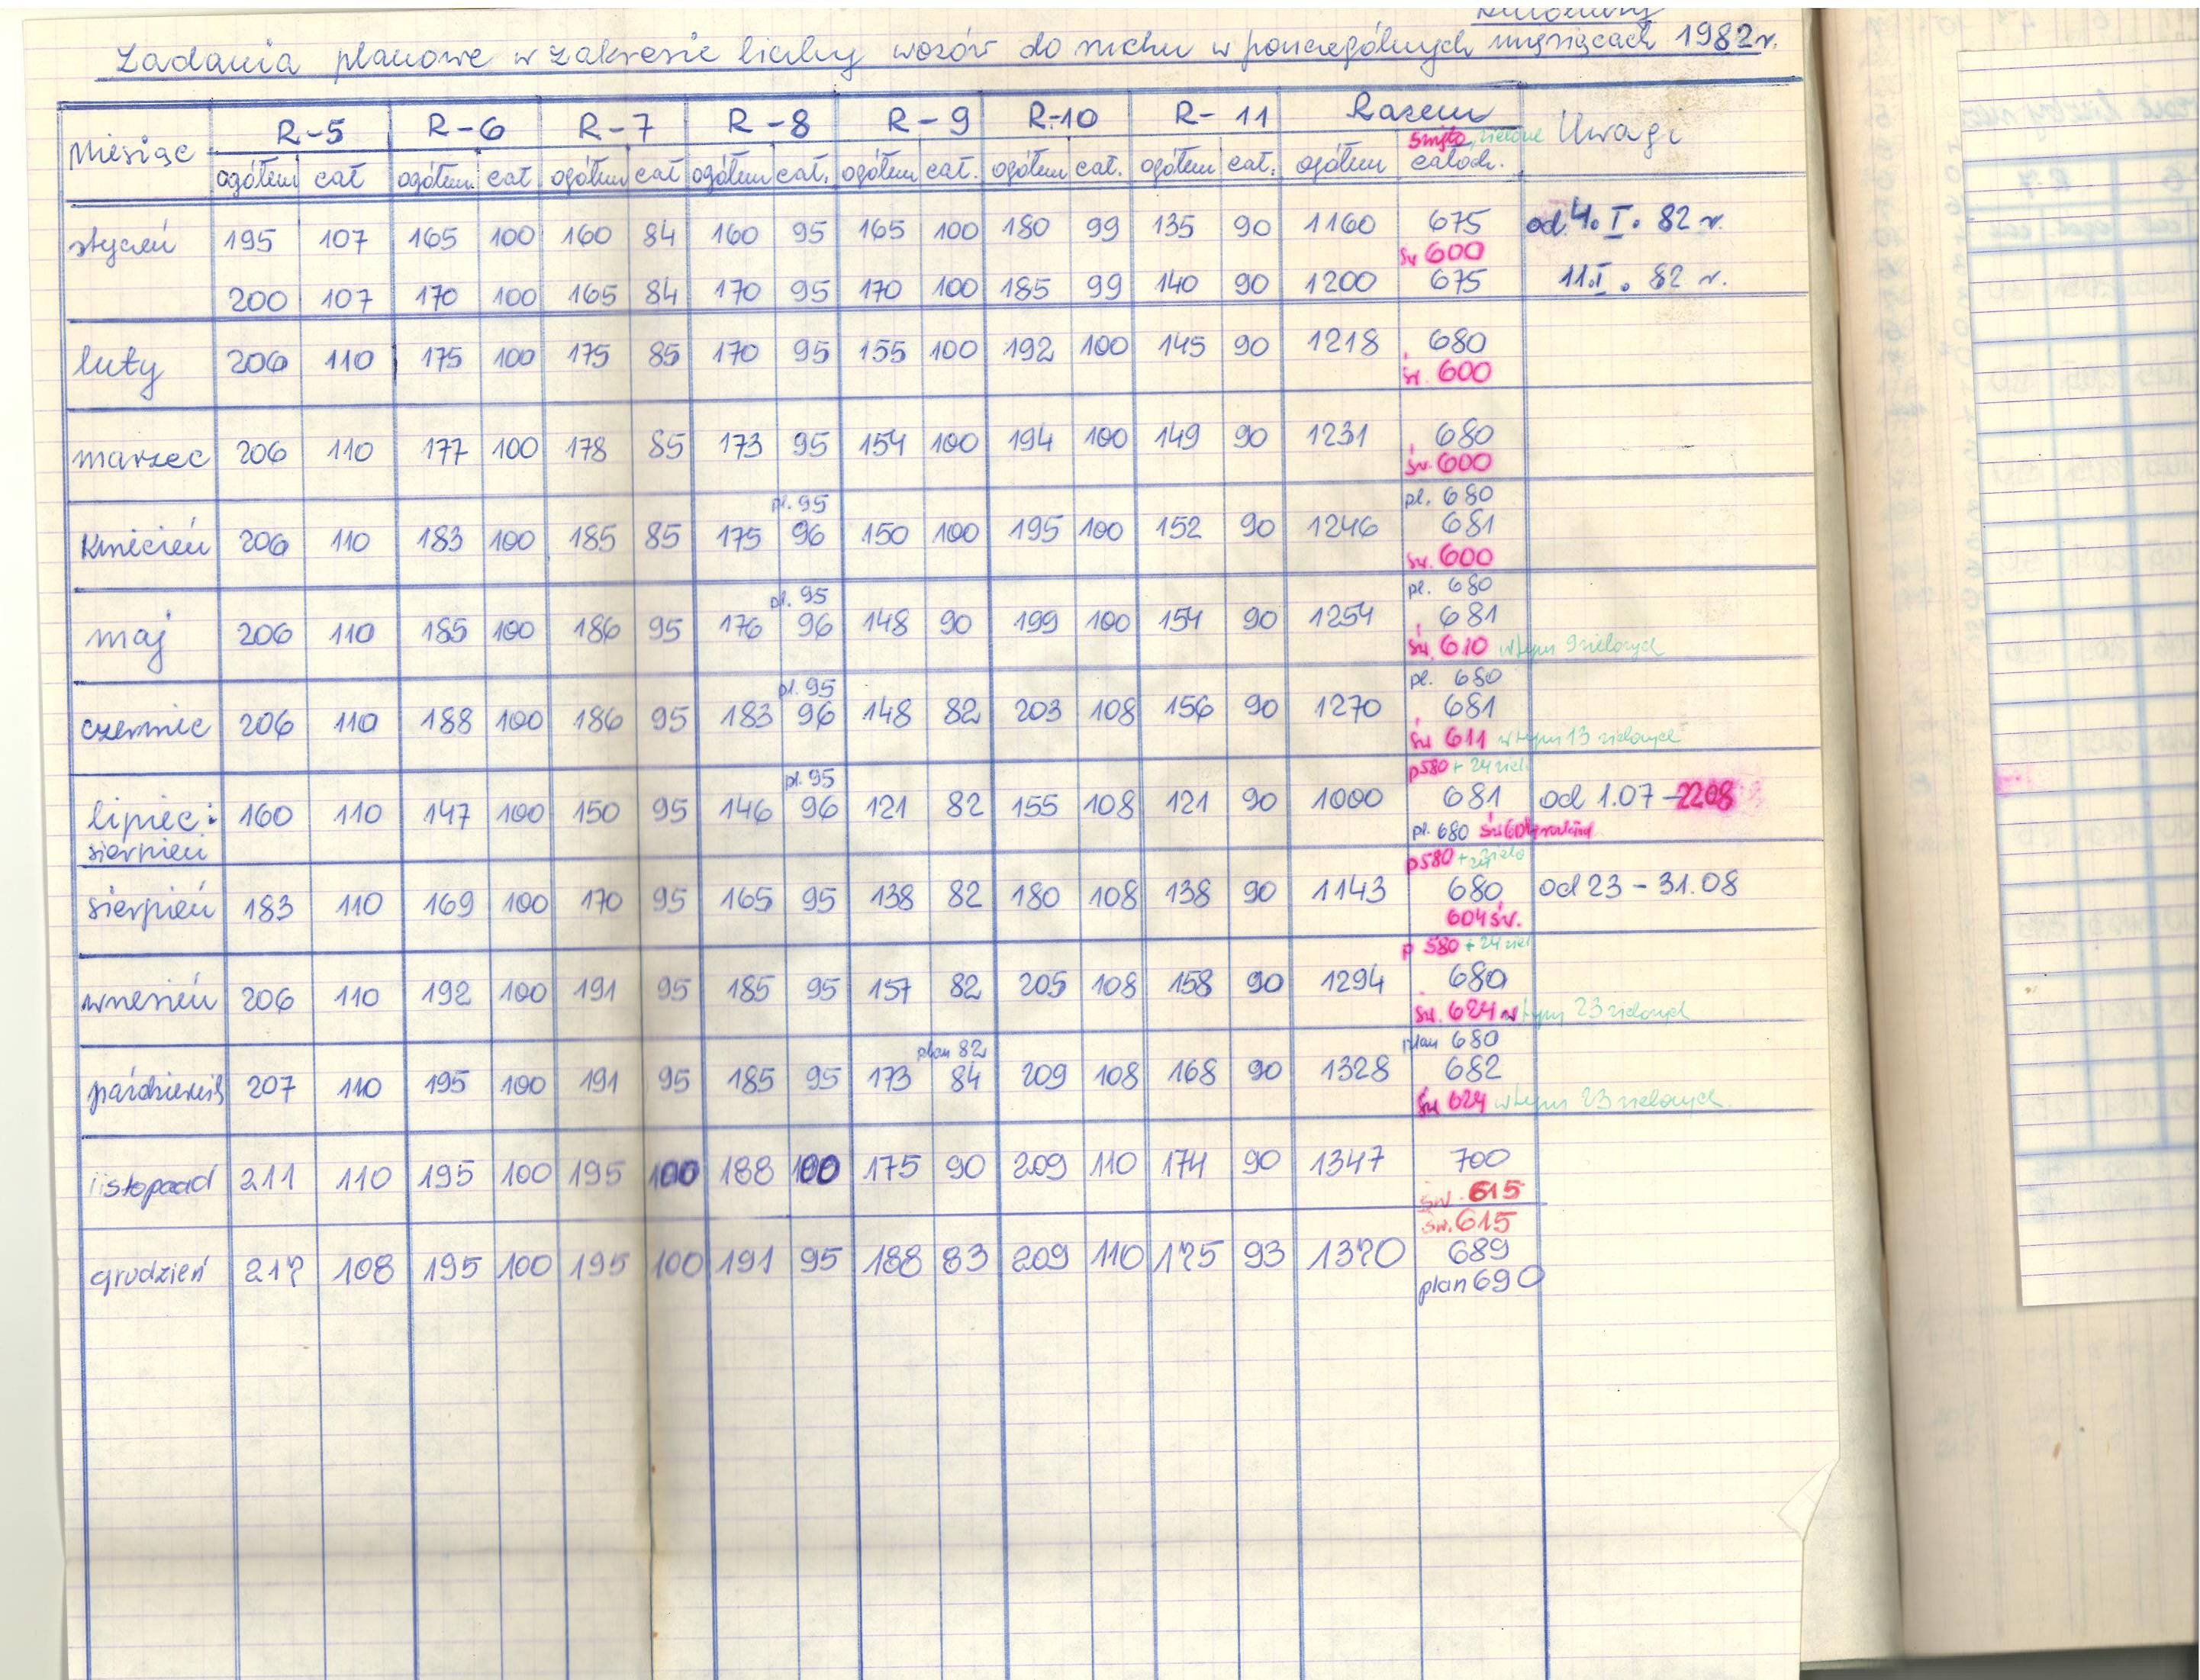 Zadania planowe w zakresie liczby wozów do ruchu w poszczególnych miesiącach 1982 r.
Miesiąc R-5 R-6 R-7 R-8 R-9 R-10 R-11 Razem Uwagi
święto, zielone
ogółem cał ogółem cał ogółem cał ogółem cał. ogółem cał. ogółem cał. ogółem cał. ogółem całodz.
styczeń 195 107 165 100 160 84 160 95 165 100 180 99 135 90 1160 675 od 4. I. 82 r.
św 600
200 107 170 100 165 84 170 95 170 100 185 99 140 90 1200 675 11.I. 82 r.
luty 206 110 175 100 175 85 170 95 155 100 192 100 145 90 1218 680
św. 600
marzec 206 110 177 100 178 85 173 95 154 100 194 100 149 90 1231 680
św. 600
pl. 95 pl. 680
kwiecień 206 110 183 100 185 85 175 96 150 100 195 100 152 90 1246 681
św. 600
pl. 95 pl. 680
maj 206 110 185 100 186 95 176 96 148 90 199 100 154 90 1254 681
św. 610 w tym 9 zielonych
pl. 95 pl. 680
czerwiec 206 110 188 100 186 95 183 96 148 82 203 108 156 90 1270 681
św 611 w tym 13 zielonych
pl. 95 p 580 + 24 ziel
lipiec i 160 110 147 100 150 95 146 96 121 82 155 108 121 90 1000 681 od 1.07 - 2208
sierpień pl. 680 św 604
p 580 +
sierpień 183 110 169 100 170 95 165 95 138 82 180 108 138 90 1143 680 od 23 - 31.08
604 św.
p 580 + 24 ziel
wrzesień 206 110 192 100 191 95 185 95 157 82 205 108 158 90 1294 680
św. 624 w tym 23 zielonych
plan 82 plan 680
październik 207 110 195 100 191 95 185 95 173 84 209 108 168 90 1328 682
św 624 w tym 23 zielonych
listopad 211 110 195 100 195 100 188 100 175 90 209 110 174 90 1347 700
św. 615
św. 615
grudzień 217 108 195 100 195 100 191 95 188 83 209 110 175 93 1370 689
plan 690